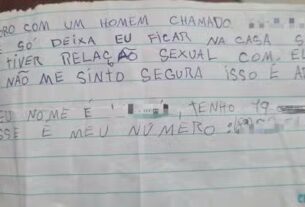 ORO COM UM HOMEM CHAMADO
SÓ DEIXA EU FICAR NA CASA S
TIVER RELAÇÃO SEXUAL COM EL
NÃO ME SINTO SEGURA ISSO É A
EU NOME É , TENHO 19
SSE É MEU NÚMERO :